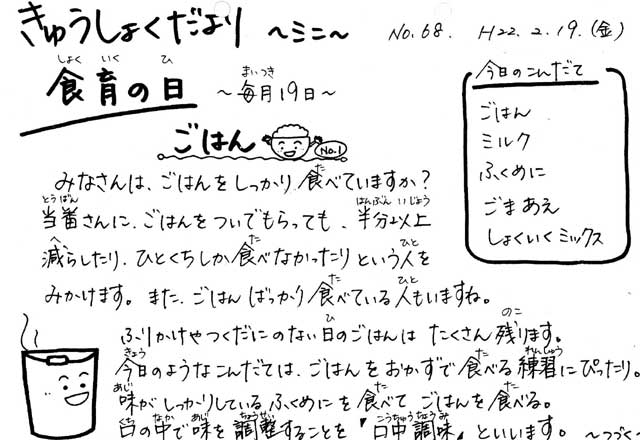 きゅうしょくだより ～ミニ～ No.68. H22.2.19.(金)
食育の日 ～毎月19日～
今日のこんだて
ごはん
ミルク
ふくめに
ごまあえ
しょくいくミックス
ごはん No.1
みなさんは、ごはんをしっかり食べていますか?
当番さんに、ごはんをついでもらっても、半分以上
減らしたり、ひとくちしか食べなかったりという人を
みかけます。また、ごはんばっかり食べている人もいますね。
ふりかけやつくだにのない日のごはんは たくさん残ります。
今日のようなこんだては、ごはんをおかずで食べる練習にぴったり。
味がしっかりしているふくめにを食べて ごはんを食べる。
口の中で味を調整することを「口中調味」といいます。 ～つづく